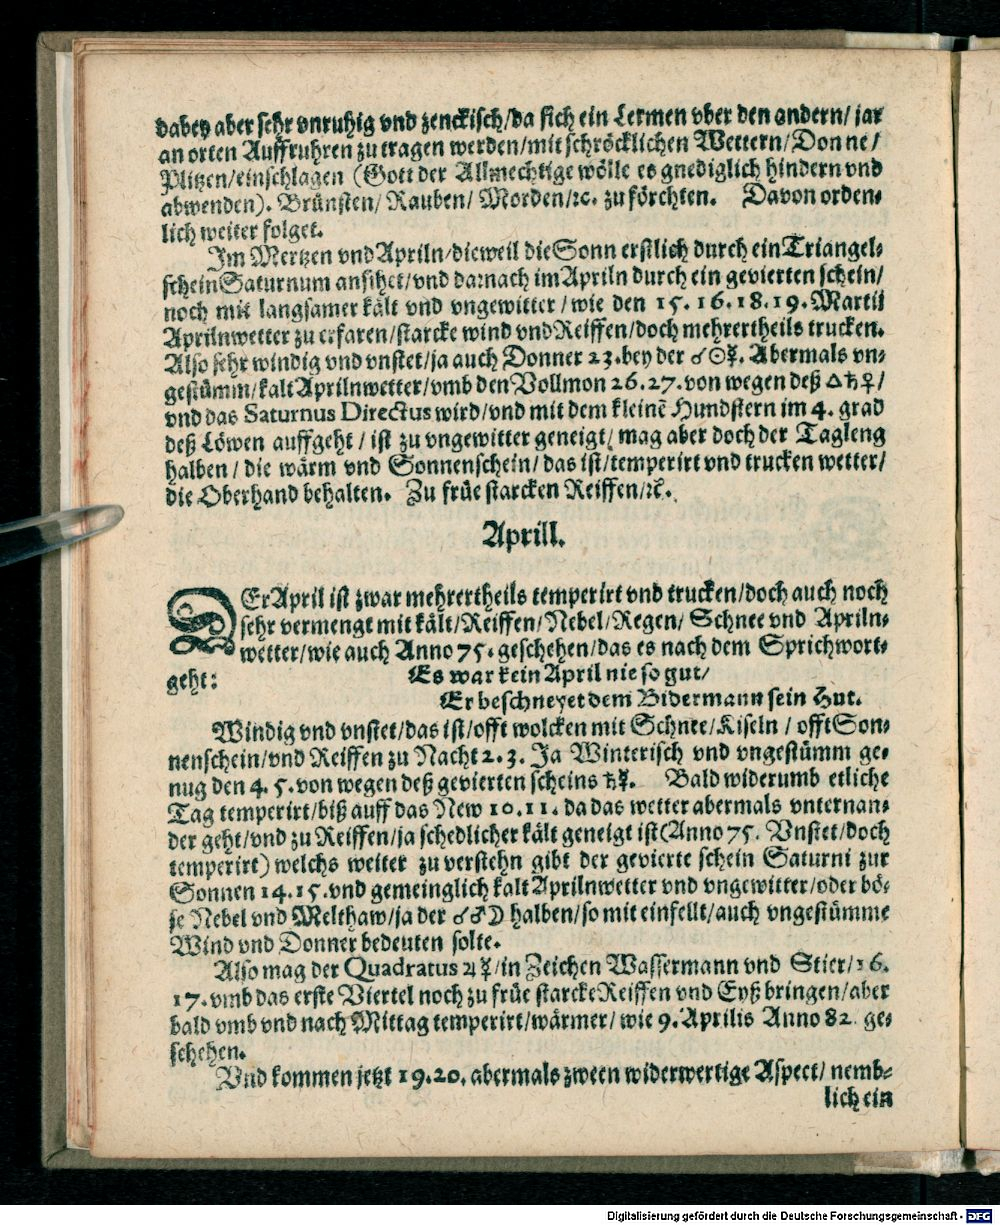 dabey aber sehr vnruhig vnd zenckisch/da sich ein Lermen vber den andern/ jar
an orten Auffruhren zu tragen werden/mit schröcklichen Wettern/Donne/
Plitzen/einschlagen (Gott der Allmechtige wölle es gnediglich hindern vnd
abwenden). Brünsten/ Rauben/ Morden/ꝛc. zu förchten. Davon orden⸗
lich weiter folget.
Im Mertzen vnd Apriln/dieweil die Sonn erstlich durch ein Triangel⸗
schein Saturnum ansihet/vnd darnach im Apriln durch ein gevierten schein/
noch mit langsamer kält vnd vngewitter/wie den 15. 16. 18. 19. Martii
Aprilnwetter zu erfaren/starcke wind vnd Reiffen/doch mehrertheils trucken.
Also sehr windig vnd vnstet/ja auch Donner 23. bey der ☌☉☿. Abermals vn⸗
gestümm/kalt Aprilnwetter/vmb den Vollmon 26. 27. von wegen deß △♄♀/
vnd das Saturnus Directus wird/vnd mit dem kleinē Hundstern im 4. grad
deß Löwen auffgeht/ ist zu vngewitter geneigt/ mag aber doch der Tagleng
halben/ die wärm vnd Sonnenschein/ das ist/temperirt vnd trucken wetter/
die Oberhand behalten. Zu früe starcken Reiffen/ꝛc̄.
Aprill.
DEr April ist zwar mehrertheils temperirt vnd trucken/doch auch noch
sehr vermengt mit kält/Reiffen/Nebel/Regen/ Schnee vnd Apriln⸗
wetter/wie auch Anno 75. geschehen/das es nach dem Sprichwort⸗
geht: Es war kein April nie so gut/
Er beschneyet dem Bidermann sein Hut.
Windig vnd vnstet/das ist/offt wolcken mit Schnee/Kiseln/ offt Son⸗
nenschein/vnd Reiffen zu Nacht 2. 3. Ja Winterisch vnd vngestümm ge⸗
nug den 4. 5. von wegen deß gevierten scheins ♄☿. Bald widerumb etliche
Tag temperirt/biß auff das New 10. 11. da das wetter abermals vnternan⸗
der geht/vnd zu Reiffen/ja schedlicher kält geneigt ist (Anno 75. Vnstet/doch
temperirt) welchs weiter zu verstehn gibt der gevierte schein Saturni zur
Sonnen 14. 15. vnd gemeinglich kalt Aprilnwetter vnd vngewitter/oder bö⸗
se Nebel vnd Melthaw/ja der ☌♂☽ halben/so mit einfellt/auch vngestümme
Wind vnd Donner bedeuten solte.
Also mag der Quadratus ♃☿/in Zeichen Wassermann vnd Stier/16.
17. vmb das erste Viertel noch zu früe starcke Reiffen vnd Eyß bringen/aber
bald vmb vnd nach Mittag temperirt/wärmer/ wie 9. Aprilis Anno 82. ge⸗
schehen.
Vnd kommen jetzt 19. 20. abermals zween widerwertige Aspect/ nemb⸗
lich ein
Digitalisierung gefördert durch die Deutsche Forschungsgemeinschaft - DFG